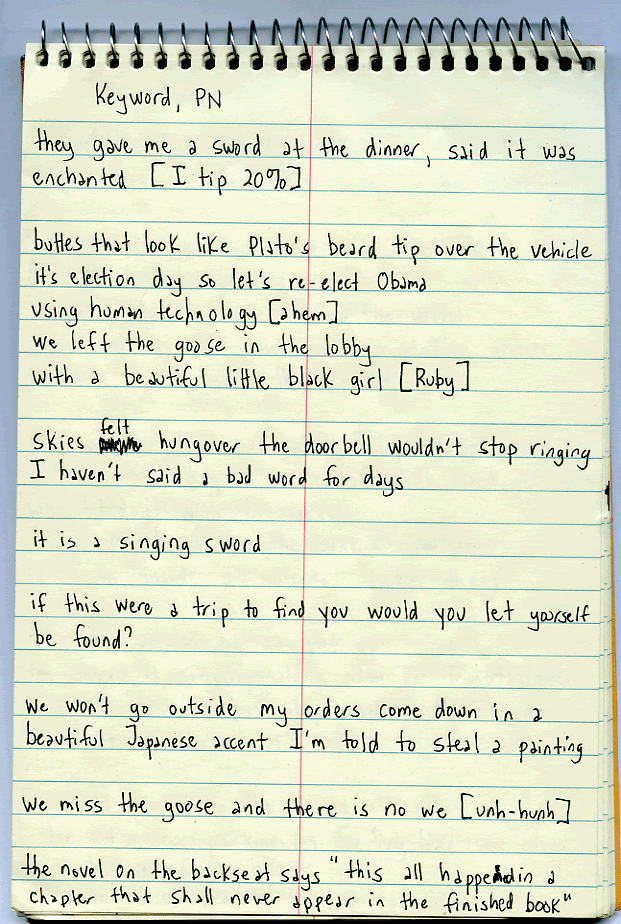 Keyword, PN
they gave me a sword at the dinner, said it was
enchanted [I tip 20%]
buttes that look like Plato's beard tip over the vehicle
it's election day so let's re-elect Obama
using human technology [ahem]
we left the goose in the lobby
with a beautiful little black girl [Ruby]
skies felt hungover the doorbell wouldn't stop ringing
I haven't said a bad word for days
it is a singing sword
if this were a trip to find you would you let yourself
be found?
we won't go outside my orders come down in a
beautiful Japanese accent I'm told to steal a painting
we miss the goose and there is no we [unh-hunh]
the novel on the backseat says "this all happened in a
chapter that shall never appear in the finished book"